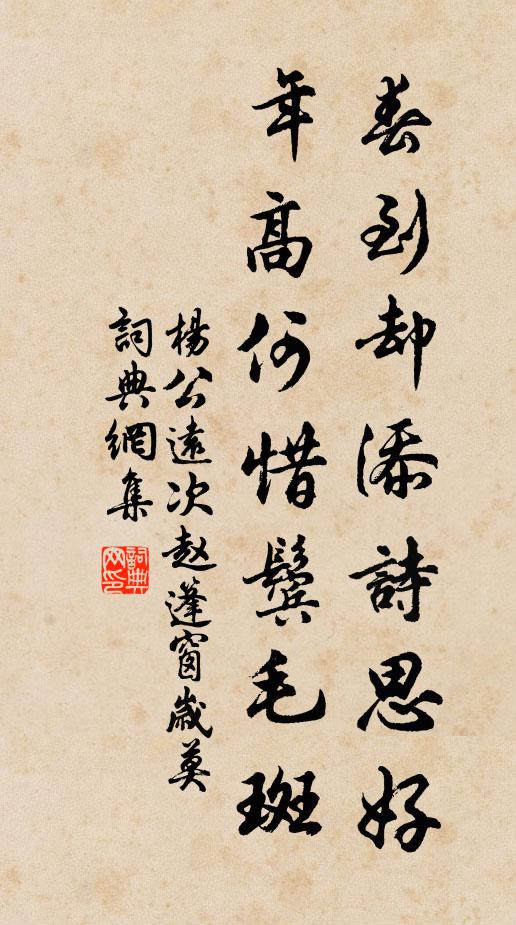 春到却添詩思好
年高何惜鬢毛斑
楊公遠次赵蓬窗歲莫
詞典網集
詞典网印